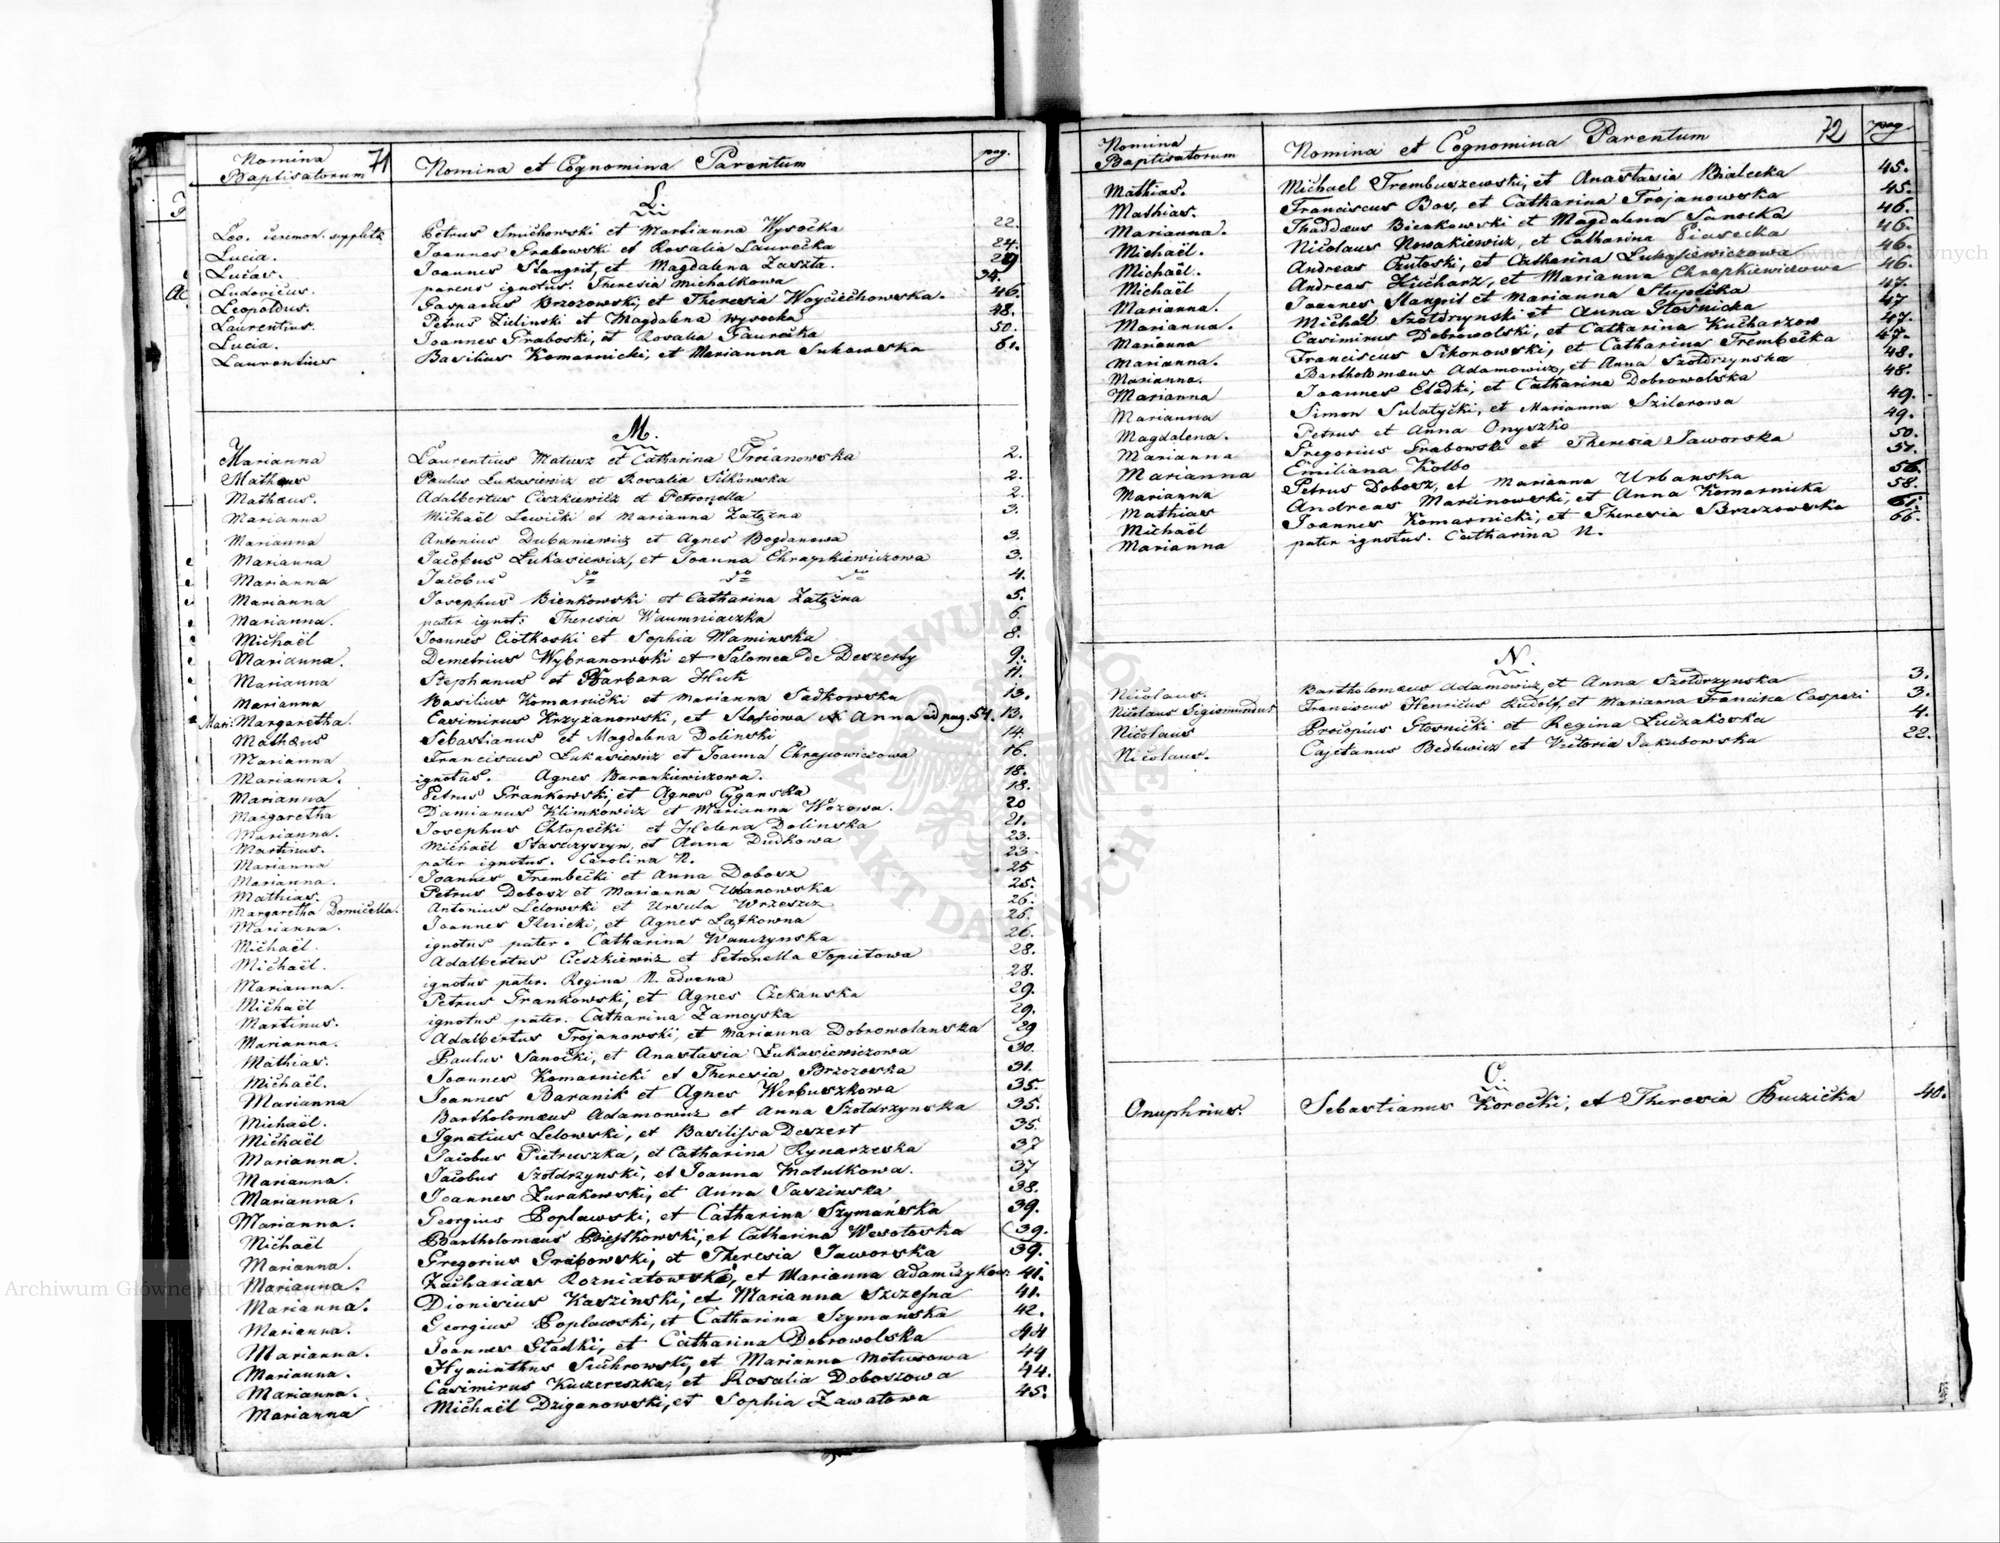 Nomina 71 Nomina et Cognomina Parentum pag.
Baptisatorum
L.
Leo. ceremon. supplete Petrus Smichowski et Marianna Wysocka 22.
Lucia. Joannes Grabowski et Rosalia Laurecka 24.
Lucas. Joannes Stangrit, et Magdalena Zaszta. 29
Ludovicus. parens ignotus. Theresia Michalkowa
Leopoldus. Gasparus Brzozowski, et Theresia Woyciechowska. 46.
Laurentius. Petrus Zielinski et Magdalena Wysocka 48.
Lucia. Joannes Graboski, et Rosalia Gaurecka 50.
Laurentius Basilius Komarnicki, et Marianna Sukowska 61.
M.
Marianna Laurentius Matusz et Catharina Troianowska 2.
Mathæus Paulus Lukasiewicz et Rosalia Silkowska 2.
Mathæus. Adalbertus Ciszkiewicz et Petronella 2.
Marianna Michaël Lewicki et Marianna Zatęzna 3.
Marianna Antonius Dubaniewicz et Agnes Bogdanowa 3.
Marianna Jacobus Łukasiewicz, et Joanna Chrapkiewiczowa 3.
Marianna Jacobus do do do 4.
Marianna Josephus Bienkowski et Catharina Zatęzna 5.
Marianna. pater ignot: Theresia Waumniaczka 6
Michaël Joannes Ciotkoski et Sophia Maminska 8.
Marianna. Demetrius Wybranowski et Salomea de Deszerty 9.
Marianna Stephanus et Barbara Huk 11.
Marianna Basilius Komarnicki et Marianna Sadkowska 13.
Mari: Margaretha. Casimirus Krzyżanowski, et Stasiowa N Anna ad pag. 54. 13.
Mathæus Sebastianus et Magdalena Dolinski 14.
Marianna Franciscus Lukasiewicz et Joanna Chrapowiczowa 16.
Marianna. ignotus. Agnes Barankiewiczowa. 18.
Marianna Petrus Frankowski, et Agnes Cyganska 18.
Margaretha Damianus Klimkowicz et Marianna Wozowa. 20
Marianna. Josephus Chłopecki et Helena Dolinska 21.
Martinus. Michaël Staszczyszyn, et Anna Dudkowa 23.
Marianna pater ignotus. Carolina N. 23
Marianna. Joannes Trembecki et Anna Dobosz 25
Mathias. Petrus Dobosz et Marianna Urbanowska 25.
Margaretha Domicella. Antonius Lelowski et Ursula Wrzeszcz 26.
Marianna. Joannes Ilnicki, et Agnes Lątkowna 26.
Michaël. ignotus pater. Catharina Wanczynska 26.
Michaël. Adalbertus Ciszkiewicz et Petronella Topiełowa 28.
Marianna. ignotus pater. Regina N. advena 28.
Michaël Petrus Frankowski, et Agnes Czekanska 29.
Martinus. ignotus pater. Catharina Zamoyska 29.
Marianna. Adalbertus Trojanowski, et Marianna Dobrowolanska 29
Mathias. Paulus Sanocki, et Anastasia Łukasiewiczowa 30.
Michaël. Joannes Komarnicki et Theresia Brzozowska 31.
Marianna Joannes Baranik et Agnes Werbuszkowa 35.
Michaël. Bartholomæus Adamowicz et Anna Szołdrzynska 35.
Michaël Ignatius Lelowski, et Basilissa Deszert 35.
Marianna. Jacobus Pietruszka, et Catharina Rynarzeska 37
Marianna. Jacobus Szołdrzynski, et Joanna Matulkowa. 37
Marianna. Joannes Zurakowski, et Anna Jaszinska 38.
Marianna. Georgius Poplawski, et Catharina Szymańska 39.
Michaël Bartholomæus Biesikowski, et Catharina Wesołoska 39.
Marianna. Gregorius Grabowski, et Theresia Jaworska 39.
Marianna. Zacharias Rozniatowski, et Marianna Adamczykow: 41.
Marianna. Dionisius Kaszinski, et Marianna Szczesna 41.
Marianna. Georgius Poplawski, et Catharina Szymanska 42.
Marianna. Joannes Gładki, et Catharina Dobrowolska 44
Marianna. Hyacinthus Suchrowski, et Marianna Motusowa 44
Marianna. Casimirus Kuczereszka, et Rosalia Doboszowa 44.
Marianna Michaël Dziganowski, et Sophia Zawatowa 45.
Nomina Nomina et Cognomina Parentum 72 pag.
Baptisatorum
Mathias. Michael Trembuszewski, et Anastasia Białecka 45.
Mathias. Franciscus Bos, et Catharina Trojanowska 45.
Marianna. Thaddæus Bienkowski et Magdalena Sanocka 46.
Michaël. Nicolaus Nowakiewicz, et Catharina Piasecka 46.
Michaël. Andreas Rutoski, et Catharina Łukasiewiczowa 46.
Michaël Andreas Kucharz, et Marianna Chrapkiewiczowa 46.
Marianna. Joannes Stangrit et Marianna Stupecka 47.
Marianna. Michaël Szołdrzynski et Anna Głośnicka 47
Marianna Casimirus Dobrowolski, et Catharina Kucharzow 47.
Marianna. Franciscus Sikorowski, et Catharina Trembecka 47.
Marianna. Bartholomæus Adamowicz, et Anna Szołdrzynska 48.
Marianna Joannes Gładki, et Catharina Dobrowolska 48.
Marianna Simon Sulatycki, et Marianna Szilerowa 49.
Magdalena. Petrus et Anna Onyszko 49.
Marianna Gregorius Grabowski et Theresia Jaworska 50.
Marianna Emiliana Kolbo 57.
Marianna Petrus Dobosz, et Marianna Urbanska 56.
Mathias Andreas Marcinowski, et Anna Komarnicka 58.
Michaël Joannes Komarnicki, et Theresia Brzozowska 61.
Marianna pater ignotus. Catharina N. 66.
N.
Nicolaus. Bartholomæus Adamowicz, et Anna Szołdrzynska 3.
Nicolaus Sigismundus Franciscus Henricus Rudolf, et Marianna Francisca Casperi 3.
Nicolaus Procopius Głosnicki et Regina Luczakoska 4.
Nicolaus. Cajetanus Bedlewicz et Victoria Jakubowska 22.
O.
Onuphrius. Sebastianus Korecki, et Theresia Buczicka 40.
Archiwum Główne Akt Dawnych
ARCHIWUM GŁÓWNE AKT DAWNYCH